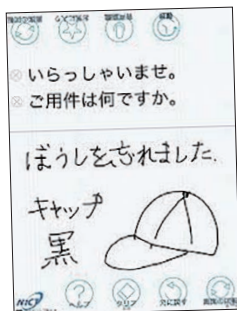 いらっしゃいませ。
ご用件は何ですか。
ぼうしを、忘れました.
キャップ
黒
NICT
ヘルプ
クリア
元に戻す